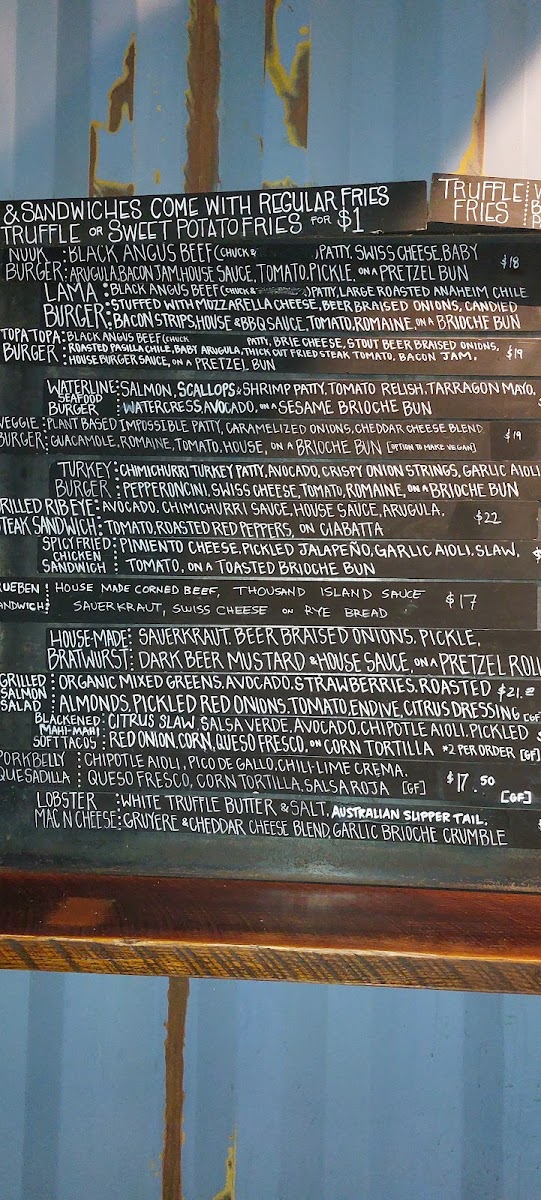 & SANDWICHES COME WITH REGULAR FRIES
TRUFFLE OR SWEET POTATO FRIES FOR $1
TRUFFLE
FRIES
NUUK BURGER: BLACK ANGUS BEEF (CHUCK & ) PATTY, SWISS CHEESE, BABY
ARUGULA, BACON JAM, HOUSE SAUCE, TOMATO, PICKLE, ON A PRETZEL BUN $18
LAMA BURGER: BLACK ANGUS BEEF (CHUCK & ) PATTY, LARGE ROASTED ANAHEIM CHILE
STUFFED WITH MOZZARELLA CHEESE, BEER BRAISED ONIONS, CANDIED
BACON STRIPS, HOUSE & BBQ SAUCE, TOMATO, ROMAINE, ON A BRIOCHE BUN
TOPA TOPA BURGER: BLACK ANGUS BEEF (CHUCK PATTY, BRIE CHEESE, STOUT BEER BRAISED ONIONS,
ROASTED PASILLA CHILE, BABY ARUGULA, THICK CUT FRIED STEAK TOMATO, BACON JAM, $19
HOUSE BURGER SAUCE, ON A PRETZEL BUN
WATERLINE SEAFOOD BURGER: SALMON, SCALLOPS & SHRIMP PATTY, TOMATO RELISH, TARRAGON MAYO,
WATERCRESS, AVOCADO, ON A SESAME BRIOCHE BUN
VEGGIE BURGER: PLANT BASED IMPOSSIBLE PATTY, CARAMELIZED ONIONS, CHEDDAR CHEESE BLEND
GUACAMOLE, ROMAINE, TOMATO, HOUSE, ON A BRIOCHE BUN [OPTION TO MAKE VEGAN] $19
TURKEY BURGER: CHIMICHURRI TURKEY PATTY, AVOCADO, CRISPY ONION STRINGS, GARLIC AIOLI
PEPPERONCINI, SWISS CHEESE, TOMATO, ROMAINE, ON A BRIOCHE BUN
RILLED RIB EYE TEAK SANDWICH: AVOCADO, CHIMICHURRI SAUCE, HOUSE SAUCE, ARUGULA, $22
TOMATO, ROASTED RED PEPPERS, ON CIABATTA
SPICY FRIED CHICKEN SANDWICH: PIMIENTO CHEESE, PICKLED JALAPEÑO, GARLIC AIOLI, SLAW, $
TOMATO, ON A TOASTED BRIOCHE BUN
UEBEN ANDWICH: HOUSE MADE CORNED BEEF, THOUSAND ISLAND SAUCE $17
SAUERKRAUT, SWISS CHEESE ON RYE BREAD
HOUSE-MADE BRATWURST: SAUERKRAUT, BEER BRAISED ONIONS, PICKLE,
DARK BEER MUSTARD & HOUSE SAUCE, ON A PRETZEL ROLL
GRILLED SALMON SALAD: ORGANIC MIXED GREENS, AVOCADO, STRAWBERRIES, ROASTED $21.
ALMONDS, PICKLED RED ONIONS, TOMATO, ENDIVE, CITRUS DRESSING [GF
BLACKENED MAHI-MAHI SOFT TACOS: CITRUS SLAW, SALSA VERDE, AVOCADO, CHIPOTLE AIOLI, PICKLED
RED ONION, CORN, QUESO FRESCO, ON CORN TORTILLA *2 PER ORDER [GF]
PORKBELLY QUESADILLA: CHIPOTLE AIOLI, PICO DE GALLO, CHILI-LIME CREMA, $17.50
QUESO FRESCO, CORN TORTILLA, SALSA ROJA [GF] [GF]
LOBSTER MAC N CHEESE: WHITE TRUFFLE BUTTER & SALT, AUSTRALIAN SLIPPER TAIL,
GRUYERE & CHEDDAR CHEESE BLEND, GARLIC BRIOCHE CRUMBLE